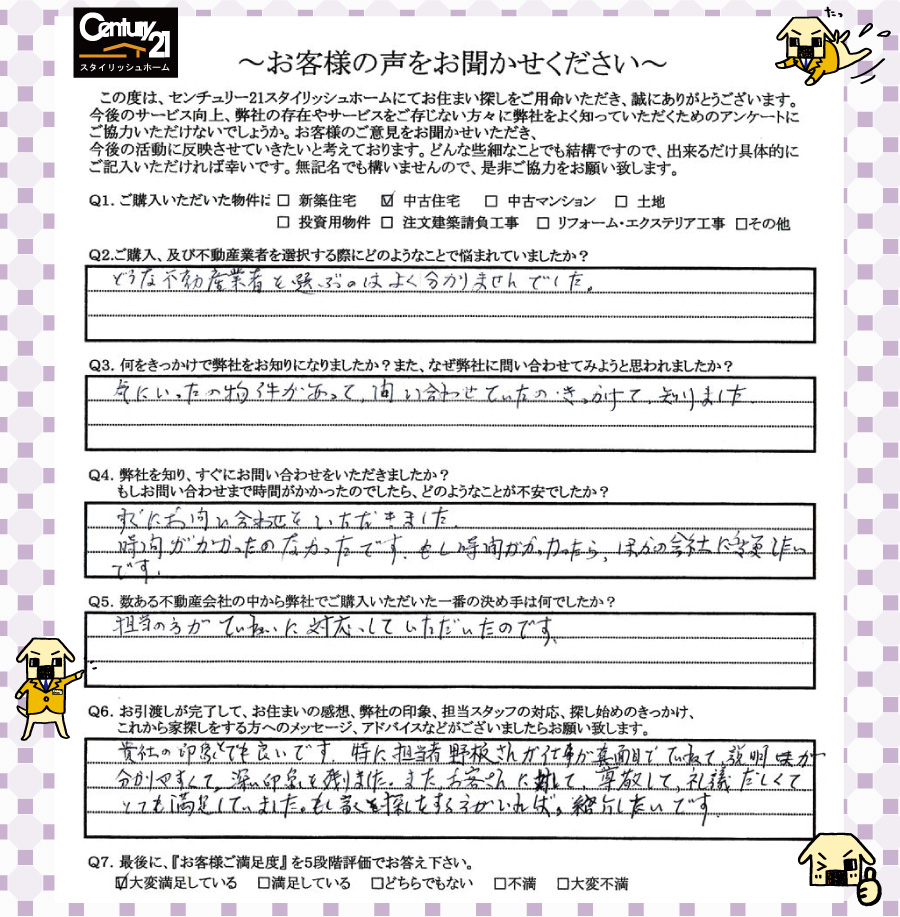 Century 21
スタイリッシュホーム
たっ
～お客様の声をお聞かせください～
この度は、センチュリー21スタイリッシュホームにてお住まい探しをご用命いただき、誠にありがとうございます。
今後のサービス向上、弊社の存在やサービスをご存じない方々に弊社をよく知っていただくためのアンケートに
ご協力いただけないでしょうか。お客様のご意見をお聞かせいただき、
今後の活動に反映させていきたいと考えております。どんな些細なことでも結構ですので、出来るだけ具体的に
ご記入いただければ幸いです。無記名でも構いませんので、是非ご協力をお願い致します。
Q1. ご購入いただいた物件に □ 新築住宅 ☑ 中古住宅 □ 中古マンション □ 土地
□ 投資用物件 □ 注文建築請負工事 □ リフォーム・エクステリア工事 □その他
Q2.ご購入、及び不動産業者を選択する際にどのようなことで悩まれていましたか？
どうな不動産業者を選ぶのはよく分かりませんでした。
Q3. 何をきっかけで弊社をお知りになりましたか？また、なぜ弊社に問い合わせてみようと思われましたか？
気にいったの物件があって、問い合わせていたのきっかけで、知りました
Q4. 弊社を知り、すぐにお問い合わせをいただきましたか？
もしお問い合わせまで時間がかかったのでしたら、どのようなことが不安でしたか？
すぐにお問い合わせをいただきました。
時間がかかったのなかったです。もし時間がかかったら、ほかの会社に変更したい
です。
Q5. 数ある不動産会社の中から弊社でご購入いただいた一番の決め手は何でしたか？
担当の方がていねいに対応していただいたのです。
Q6. お引渡しが完了して、お住まいの感想、弊社の印象、担当スタッフの対応、探し始めのきっかけ、
これから家探しをする方へのメッセージ、アドバイスなどがございましたらお願い致します。
貴社の印象とても良いです。特に担当者野板さんが仕事が真面目でていねいで、説明が
分かりやすくて、深い印象を残りました。またお客さんに対して、尊敬して、礼儀だしくて
とても満足していました。もし家を探しをする方がいれば、紹介したいです。
Q7. 最後に、『お客様ご満足度』を5段階評価でお答え下さい。
☑大変満足している □満足している □どちらでもない □不満 □大変不満